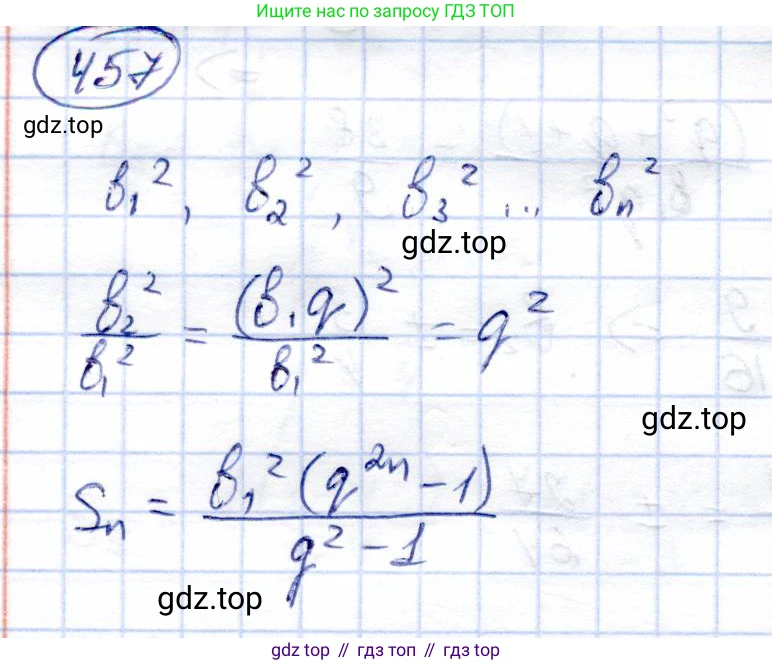 Ищите нас по запросу ГДЗ ТОП
457
gdz.top
b₁², b₂², b₃² ... bₙ²
gdz.top
b₂²/b₁² = (b₁q)²/b₁² = q²
gdz.top
Sₙ = b₁²(q²ⁿ - 1)/(q² - 1)
gdz.top
gdz top // гдз топ // gdz top